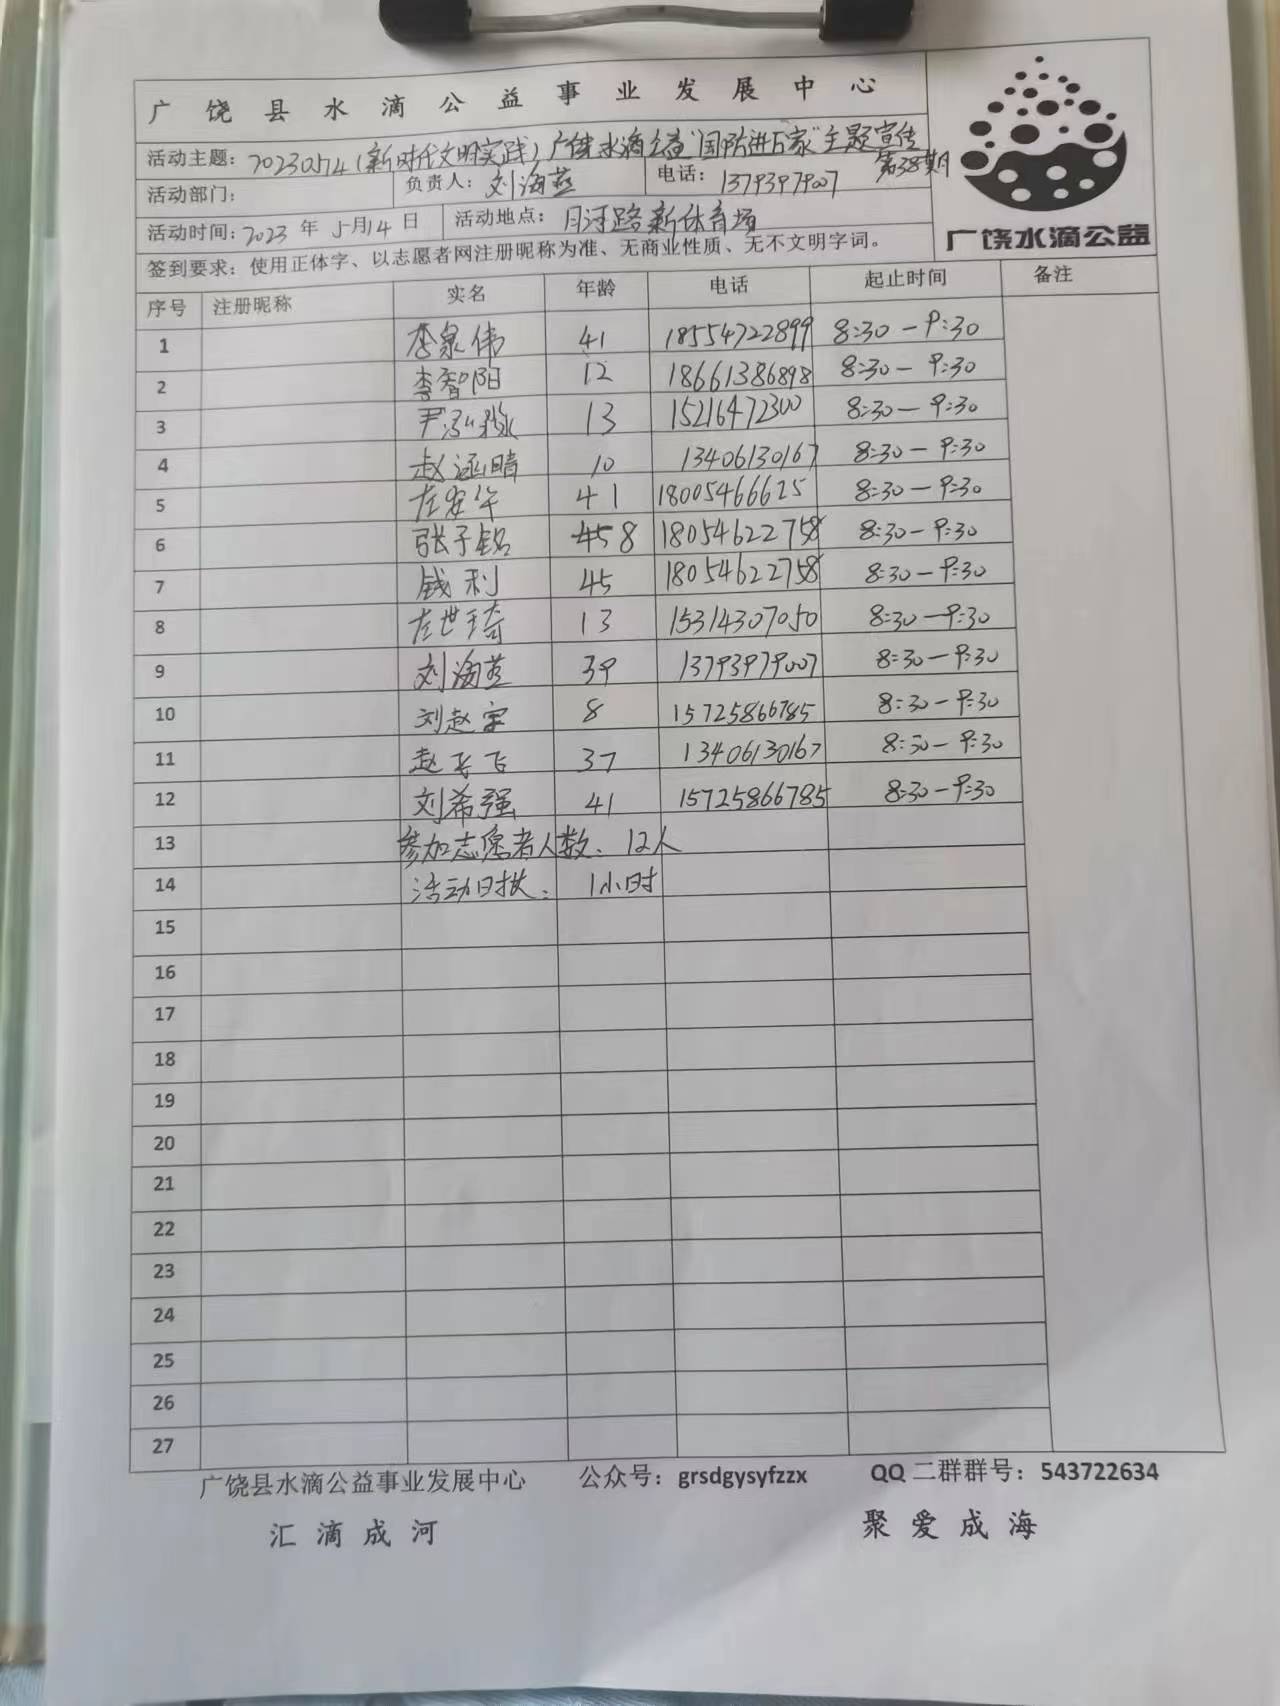 广饶县水滴公益事业发展中心
活动主题：20230514(新时代文明实践)广饶水滴公益"国防进万家"主题宣传
第38期
活动部门： 负责人：刘海燕 电话：13793979007
活动时间：2023年5月14日 活动地点：月河路新体育场
广饶水滴公益
签到要求：使用正体字、以志愿者网注册昵称为准、无商业性质、无不文明字词。
序号 注册昵称 实名 年龄 电话 起止时间 备注
1 李泉伟 41 18554722899 8:30-9:30
2 李智阳 12 18661386898 8:30-9:30
3 尹泓 13 15216472300 8:30-9:30
4 赵涵晴 10 13406130167 8:30-9:30
5 左安午 41 18005466625 8:30-9:30
6 张子铭 8 18054622758 8:30-9:30
7 钱利 45 18054622758 8:30-9:30
8 左世琦 13 15314307050 8:30-9:30
9 刘海燕 39 13793979007 8:30-9:30
10 刘赵宇 8 15725866785 8:30-9:30
11 赵飞飞 37 13406130167 8:30-9:30
12 刘希强 41 15725866785 8:30-9:30
13 参加志愿者人数：12人
14 活动时长：1小时
15
16
17
18
19
20
21
22
23
24
25
26
27
广饶县水滴公益事业发展中心 公众号：grsdgysyfzzx QQ二群群号：543722634
汇滴成河 聚爱成海